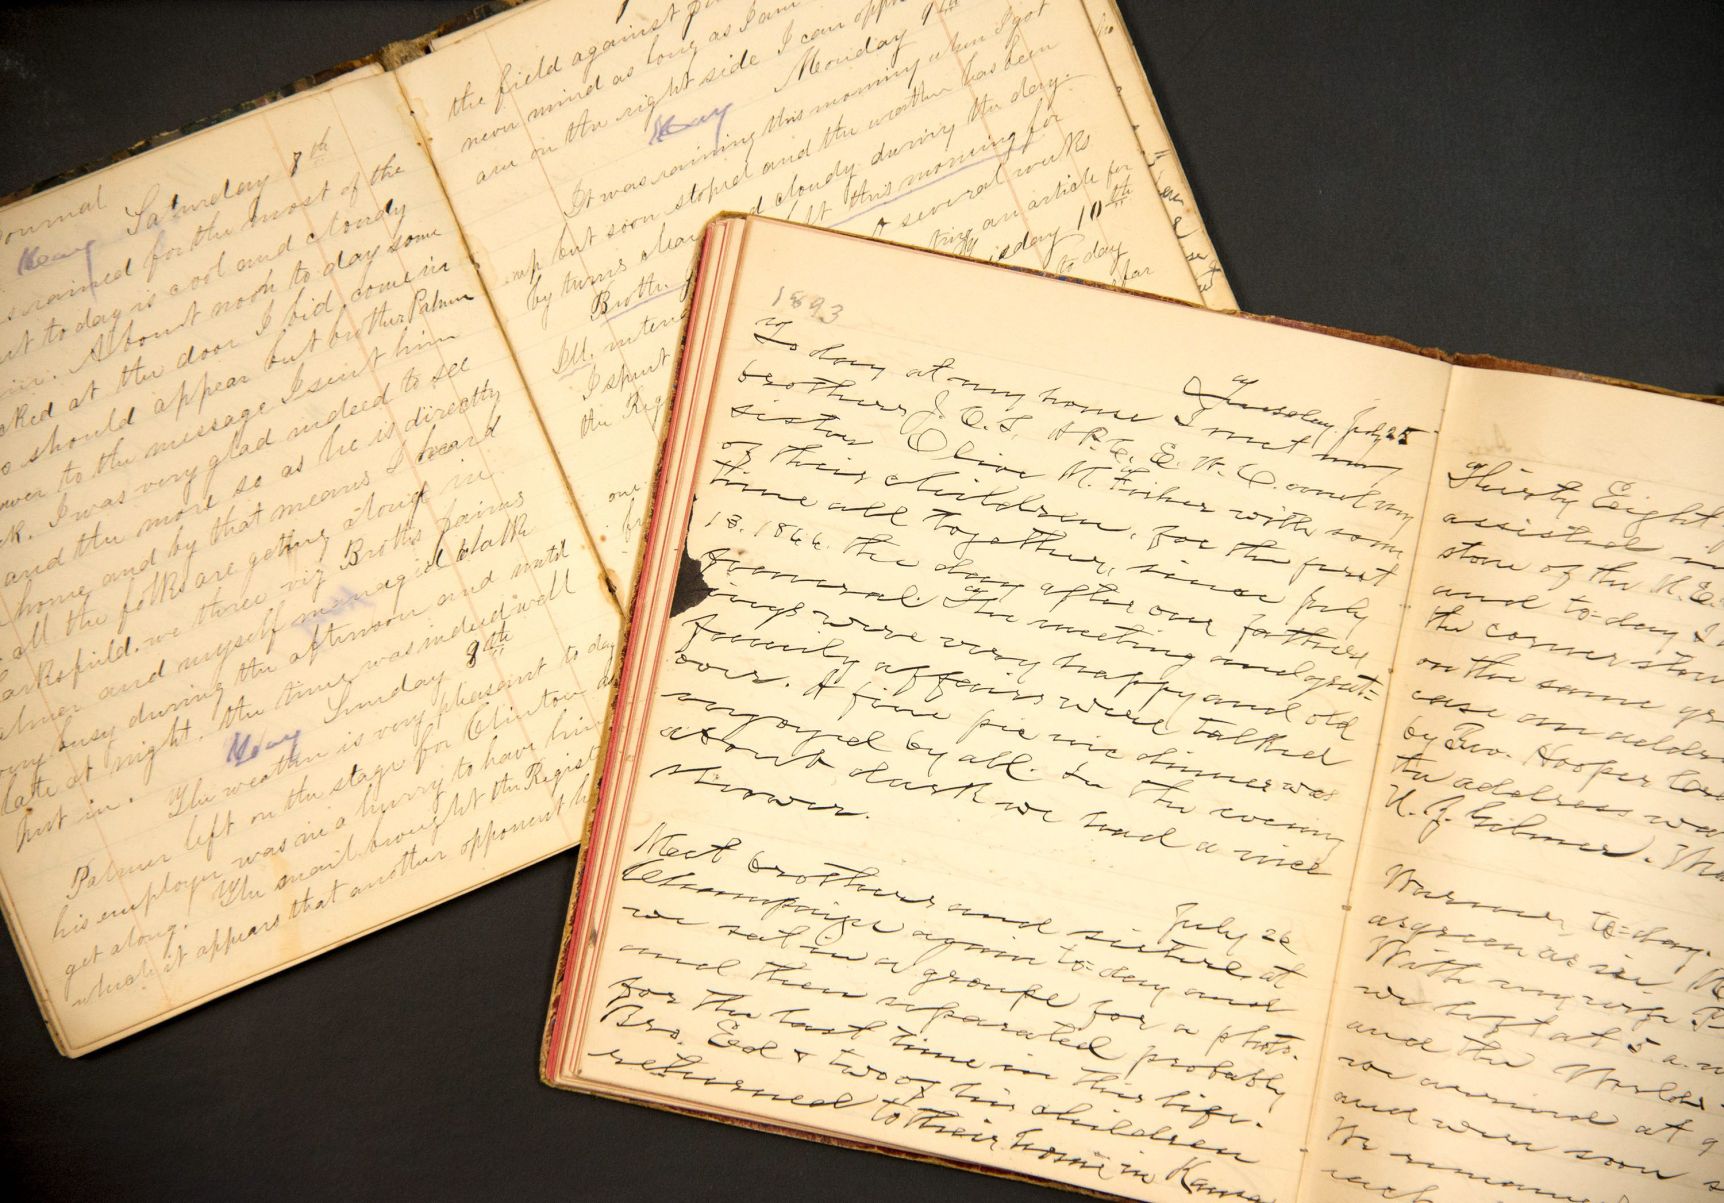 Journal Saturday 8th
May
rained for the most of the
but to day is cool and cloudy
About noon to day some
ked at the door I bid come in
should appear but brother Palmer
to the message I sent him
I was very glad indeed to see
and the more so as he is directly
home and by that means I heard
all the folks are getting along in
arksfield. we three viz Broths pairns
almer and myself managed to talk
busy during the afternoon and until
late at night. the time was indeed well
put in. May Sunday 9th
The weather is very pleasant to day
Palmer left on the stage for Clinton
his employer was in a hurry to have him
get along. The mail brought the Regist
which it appears that another opponent
the field against
never mind as long as I am
are on the right side I can
May Monday 9th
It was raining this morning when I got
up but soon stoped and the weather has been
by turns clear d cloudy during the day.
Brothe left this morning for
Ill. several weeks
I spent ting an article for
the Reg 10th
to day
1893
Tuesday. July 25
To day at my home I met my
brothers J. O. S, A R. C, E. W. C. and my
sister Olive M. Fisher with some
of their children, for the first
time all together, since July
13. 1866. the day after our fathers
funeral. The meeting and greet=
ings were very happy and old
family affairs were talked
over. A fine pic nic dinner was
enjoyed by all. In the evening
about dark we had a nice
shower.
July 26
Meet brothers and sisters at
Champaign again to=day and
we sat in a groupe for a photo.
and then separated probably
for the last time in this life.
Bro. Ed & two of his children
returned to their home in Kansa
Thirty Eight
assisted
stone of the M.E.
and to=day I
the corner stone
on the same gr
case an addre
by Rev. Hooper
the address wa
U. J. Gilmer.
Warmer to=day.
as green as
With my wife
we left at 5 a. m
and the Worlds
we arrived at 9
and were soon
We
each